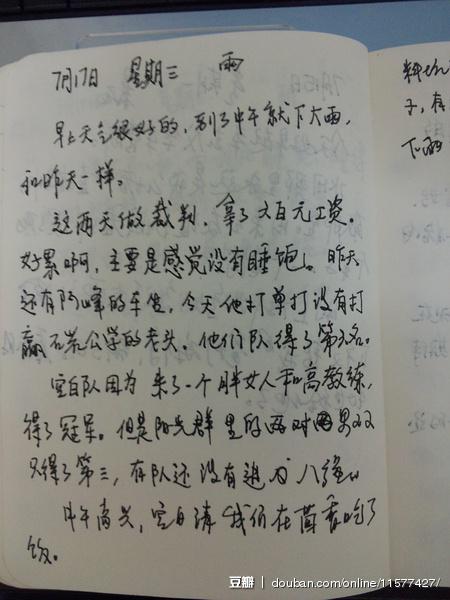 7月17日 星期三 雨
早上天气很好的,到了中午就下大雨,
和昨天一样。
这两天做裁判,拿了 百元工资。
好累啊,主要是感觉没有睡饱。昨天
还有阿峰的车坐,今天他打单打没有打
赢 公学的老头。他们队得了第 名。
空白队因为来了一个胖女人和高教练,
得了冠军。但是阳光群里的两对 男双
只得了第三,有队还没有进 八强。
中午 ,空白请我们在 吃了
饭。
料
子,有
下雨
豆瓣 douban.com/online/11577427/